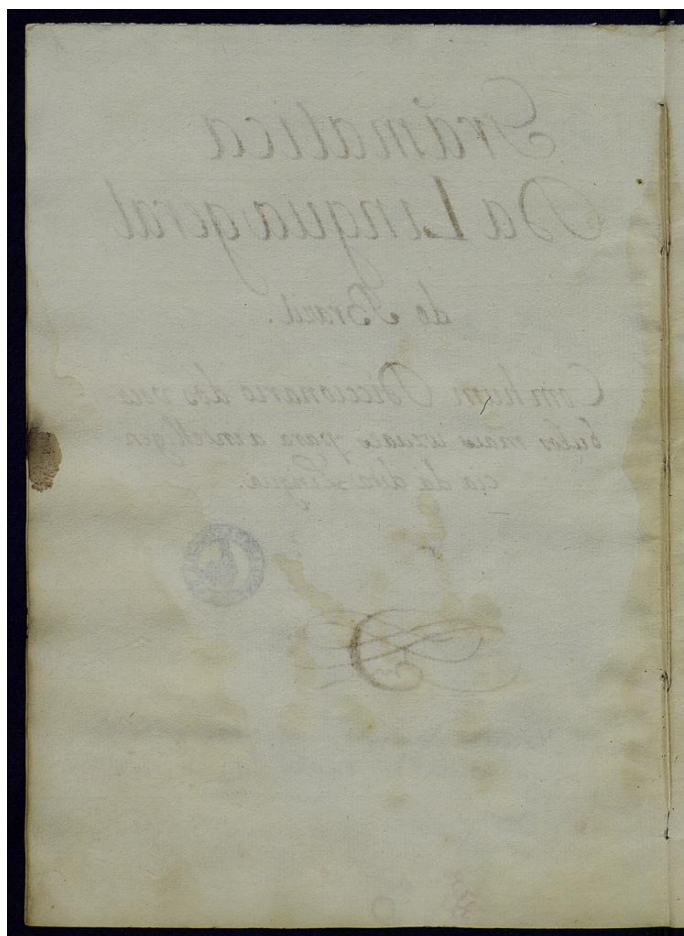 Grámatica
Da Lingua geral
do Brazil.
Com hum Diccionario dos voca
bulos mais uzuaes para a intelligen
cia da dita Lingua.